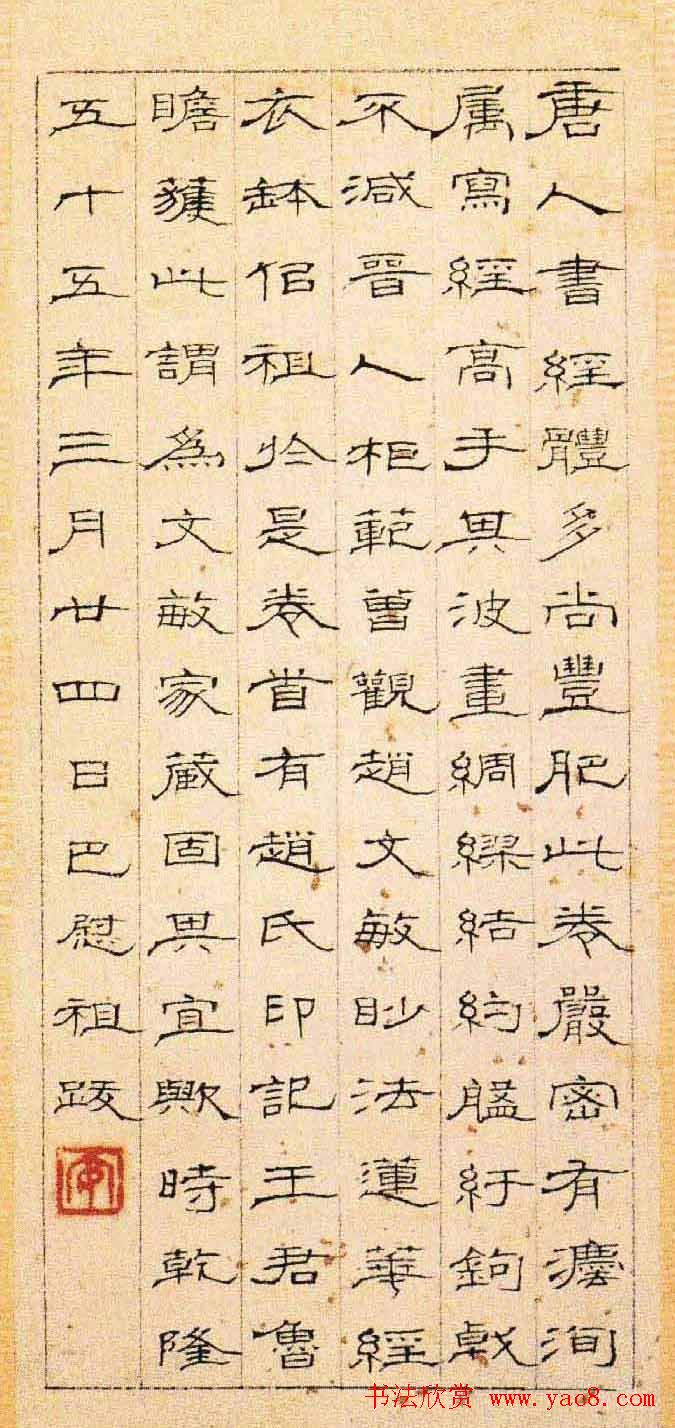 唐人書經體多尚豐肥此卷嚴密有灋洵
属寫經高手其波畫綢繆結約紆鉤戟
不減晉人柜範曾觀趙文敏眇法蓮華經
衣鉢佀祖於是卷首有趙氏印記王君魯
瞻獲此謂為文敏家藏固其宜歟時乾隆
五十五年三月廿四日巴慰祖跋
书法欣赏 www.yao8.com